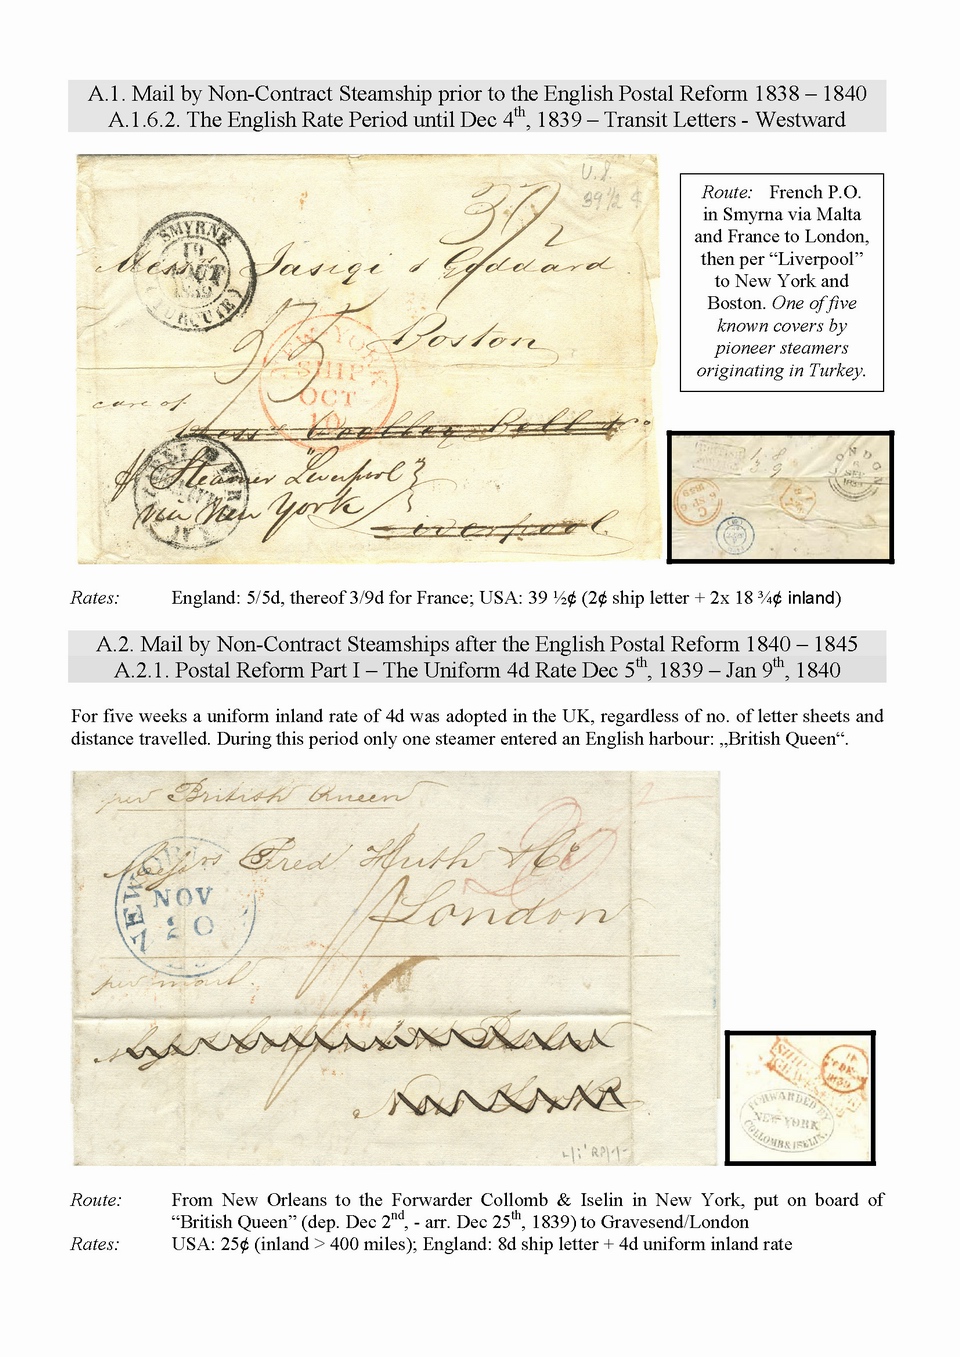 A.1. Mail by Non-Contract Steamship prior to the English Postal Reform 1838 – 1840
A.1.6.2. The English Rate Period until Dec 4th, 1839 – Transit Letters - Westward
U.S.
39 1/2 ¢
SMYRNE
19
AOUT
1839
(TURQUIE)
Messrs Iasigi & Goddard
Boston
NEW YORK
SHIP
OCT
10
care of
pr Steamer "Liverpool"
via New York
Liverpool
Route: French P.O.
in Smyrna via Malta
and France to London,
then per “Liverpool”
to New York and
Boston. One of five
known covers by
pioneer steamers
originating in Turkey.
LONDON
Rates: England: 5/5d, thereof 3/9d for France; USA: 39 ½¢ (2¢ ship letter + 2x 18 ¾¢ inland)
A.2. Mail by Non-Contract Steamships after the English Postal Reform 1840 – 1845
A.2.1. Postal Reform Part I – The Uniform 4d Rate Dec 5th, 1839 – Jan 9th, 1840
For five weeks a uniform inland rate of 4d was adopted in the UK, regardless of no. of letter sheets and
distance travelled. During this period only one steamer entered an English harbour: „British Queen“.
per British Queen
Messrs Fred Huth & Co
London
NOV
20
per mail
New York
SHIP
1839
FORWARDED BY
NEW-YORK
COLLOMB & ISELIN.
Route: From New Orleans to the Forwarder Collomb & Iselin in New York, put on board of
“British Queen” (dep. Dec 2nd, - arr. Dec 25th, 1839) to Gravesend/London
Rates: USA: 25¢ (inland > 400 miles); England: 8d ship letter + 4d uniform inland rate